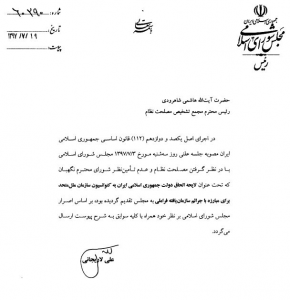 شماره: ۶۰۲۹۰
تاریخ: ۱۳۹۷/۷/۱۹
پیوست:
جمهوری اسلامی ایران
مجلس شورای اسلامی
رئیس
حضرت آیت‌الله هاشمی شاهرودی
رئیس محترم مجمع تشخیص مصلحت نظام
در اجرای اصل یکصد و دوازدهم (۱۱۲) قانون اساسی جمهوری اسلامی
ایران مصوبه جلسه علنی روز سه‌شنبه مورخ ۱۳۹۷/۷/۳ مجلس شورای اسلامی
با در نظر گرفتن مصلحت نظام و عدم تأمین‌نظر شورای محترم نگهبان
که تحت عنوان لایحه الحاق دولت جمهوری اسلامی ایران به کنوانسیون سازمان ملل‌متحد
برای مبارزه با جرائم سازمان‌یافته فراملی به مجلس تقدیم گردیده بود، بر اساس اصرار
مجلس شورای اسلامی بر نظر خود همراه با کلیه سوابق به شرح پیوست ارسال
می‌گردد.
علی لاریجانی